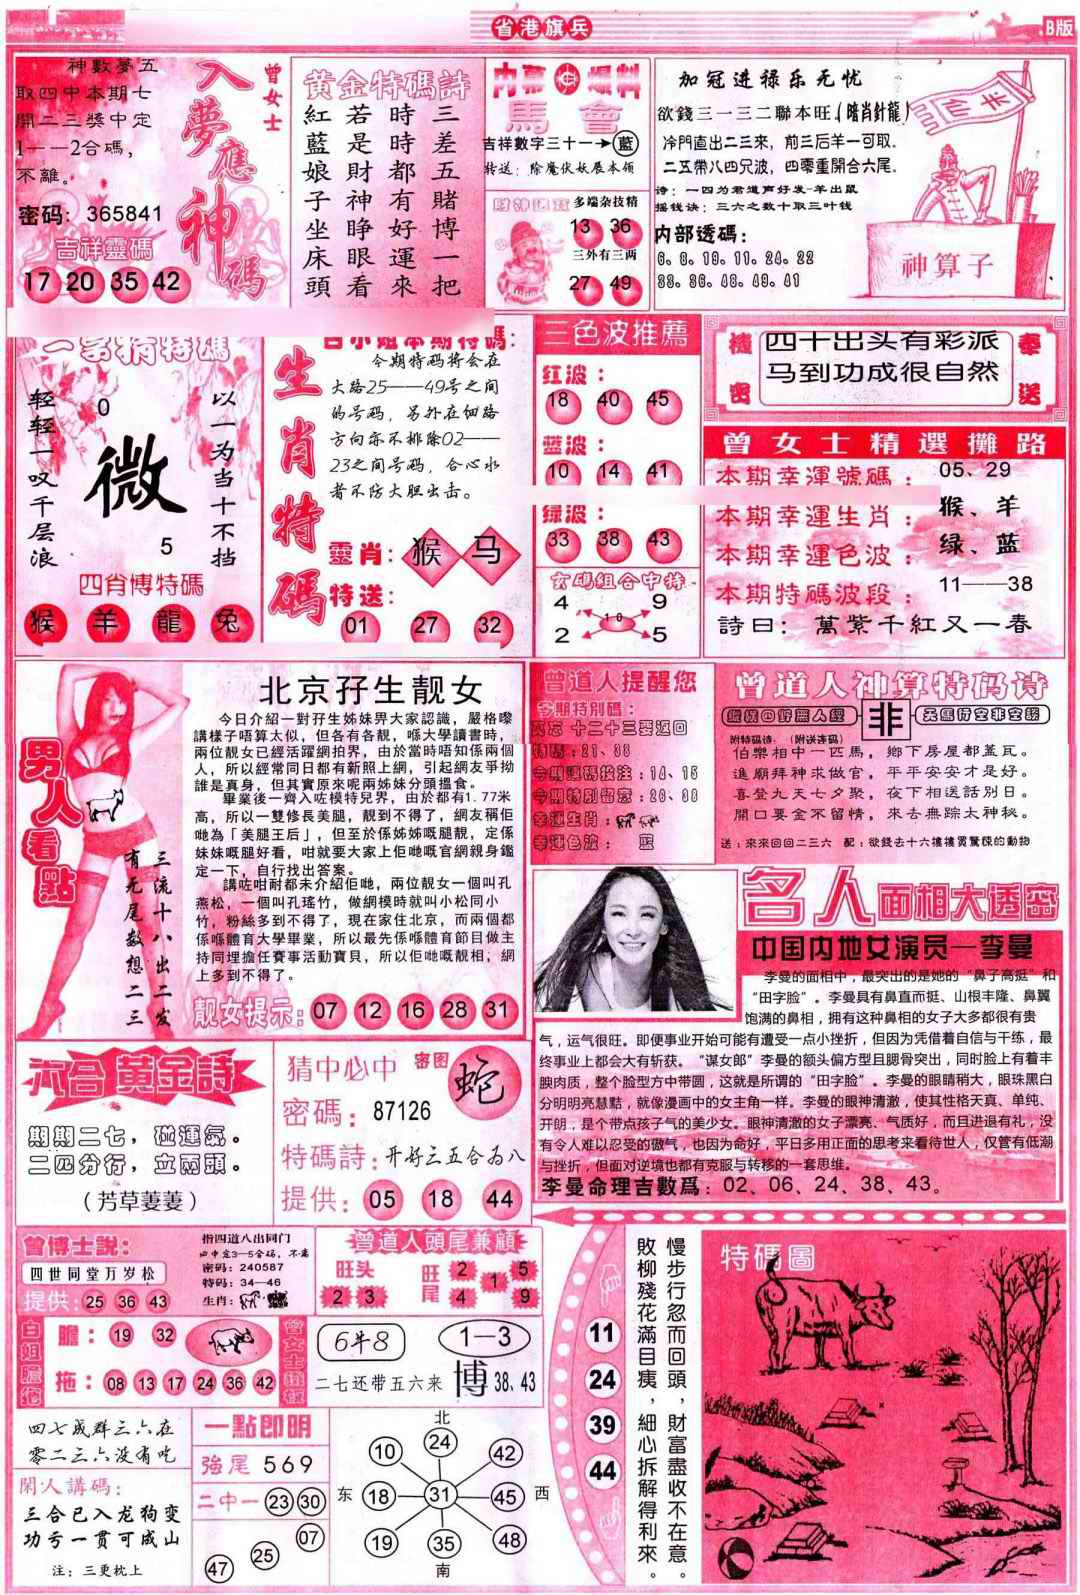 省港旗兵
B版
神數夢五
取四中本期七
開二三獎中定
1——2合碼，
不離。
密码：365841
吉祥靈碼
17 20 35 42
曾女士
入夢應神碼
黄金特碼詩
三差五賭博一把
時時都有好運來
若是財神睁眼看
紅藍娘子坐床頭
内幕爆料
馬會
吉祥數字三十一→藍
转送：除魔伏妖展本领
多端杂技精
13 36
三外有三两
27 49
加冠进禄乐无忧
欲錢三一三二聯本旺(暗肖針龍)
冷門直出二三來，前三后羊一可取.
二五带八四兄波，四零重開合六尾.
诗：一四为君道声好发-羊出鼠
摇钱诀：三六之数十取三叶钱
内部透碼：
6. 8. 10. 11. 24. 22
33. 36. 48. 49. 41
神算子
轻轻一叹千层浪
0
微
5
以一为当十不挡
四肖博特碼
猴 羊 龍 兔
生肖特碼
今期特码将会在
大路25——49号之间
的号码，另外在细路
方向亦不排除02——
23之间号码，合心水
者不防大胆出击。
靈肖：猴 马
特送：
01 27 32
三色波推薦
红波：
18 40 45
蓝波：
10 14 41
绿波：
33 38 43
玄碼組合中特
4 9
10
2 5
機密
四十出头有彩派
马到功成很自然
奉送
曾女士精選攤路
本期幸運號碼：05、29
本期幸運生肖：猴、羊
本期幸運色波：绿、蓝
本期特碼波段：11——38
詩曰：萬紫千紅又一春
男人看點
三流十八出二发
有无尾数想二三
北京孖生靓女
今日介紹一對孖生姊妹畀大家認識，嚴格嚟
講樣子唔算太似，但各有各靚，喺大學讀書時，
兩位靚女已經活躍網拍界，由於當時唔知係兩個
人，所以經常同日都有新照上網，引起網友爭拗
誰是真身，但其實原來呢兩姊妹分頭搵食。
畢業後一齊入咗模特兒界，由於都有1.77米
高，所以一雙修長美腿，靚到不得了，網友稱佢
哋為「美腿王后」，但至於係姊姊嘅腿靚，定係
妹妹嘅腿好看，咁就要大家上佢哋嘅官網親身鑑
定一下，自行找出答案。
講咗咁耐都未介紹佢哋，兩位靚女一個叫孔
燕松，一個叫孔瑤竹，做網模時就叫小松同小
竹，粉絲多到不得了，現在家住北京，而兩個都
係喺體育大學畢業，所以最先係喺體育節目做主
持同埋擔任賽事活動寶貝，所以佢哋嘅靚相，網
上多到不得了。
靓女提示：07 12 16 28 31
曾道人提醒您
今期特别碼：
十二十三要返回
今期選碼投注：14、15
今期特别留意：28、38
幸運生肖：
幸運色波：蓝
曾道人神算特码诗
非
附特码诗：(附送连码)
伯樂相中一匹馬，鄉下房屋都蓋瓦。
進廟拜神求做官，平平安安才是好。
喜登九天七夕聚，夜下相送話別日。
開口要金不留情，來去無踪太神秘。
送：來來回回二三六 配：欲錢去十六樓樓買驚悚的動物
名人面相大透密
中国内地女演员—李曼
李曼的面相中，最突出的是她的“鼻子高挺”和
“田字脸”。李曼具有鼻直而挺、山根丰隆、鼻翼
饱满的鼻相，拥有这种鼻相的女子大多都很有贵
气，运气很旺。即便事业开始可能有遭受一点小挫折，但因为凭借着自信与干练，最
终事业上都会大有斩获。“谋女郎”李曼的额头偏方型且腮骨突出，同时脸上有着丰
腴肉质，整个脸型方中带圆，这就是所谓的“田字脸”。李曼的眼睛稍大，眼珠黑白
分明明亮慧黠，就像漫画中的女主角一样。李曼的眼神清澈，使其性格天真、单纯、
开朗，是个带点孩子气的美少女。眼神清澈的女子漂亮、气质好，而且进退有礼，没
有令人难以忍受的傲气，也因为命好，平日多用正面的思考来看待世人，仅管有低潮
与挫折，但面对逆境也都有克服与转移的一套思维。
李曼命理吉數爲：02、06、24、38、43。
六合黄金詩
期期二七，碰運氣。
二四分行，立兩頭。
（芳草萋萋）
猜中必中 密图 蛇
密碼：87126
特碼詩：开好三五合为八
提供：05 18 44
曾博士説：
四世同堂万岁松
提供：25 36 43
指四道八出同门
四中定3—5合码，不离
密码：240587
特码：34—46
生肖：
曾道人頭尾兼顧
旺头
2 3
旺尾
2 5
1
4 9
白姐膽拖
膽：19 32
拖：08 13 17 24 36 42
6斗8
1—3
二七还带五六来 博38、43
四七成群三六在
零二三六没有吃
閑人講碼：
三合已入龙狗变
功亏一贯可成山
注：三更枕上
一點即明
強尾 569
二中一 23 30
07
25
47
北
24
10 42
东 18 31 45 西
19 48
35
南
11
24
39
44
慢步行忽而回頭，財富盡收不在意。
敗柳殘花滿目痍，細心拆解得利來。
特碼圖